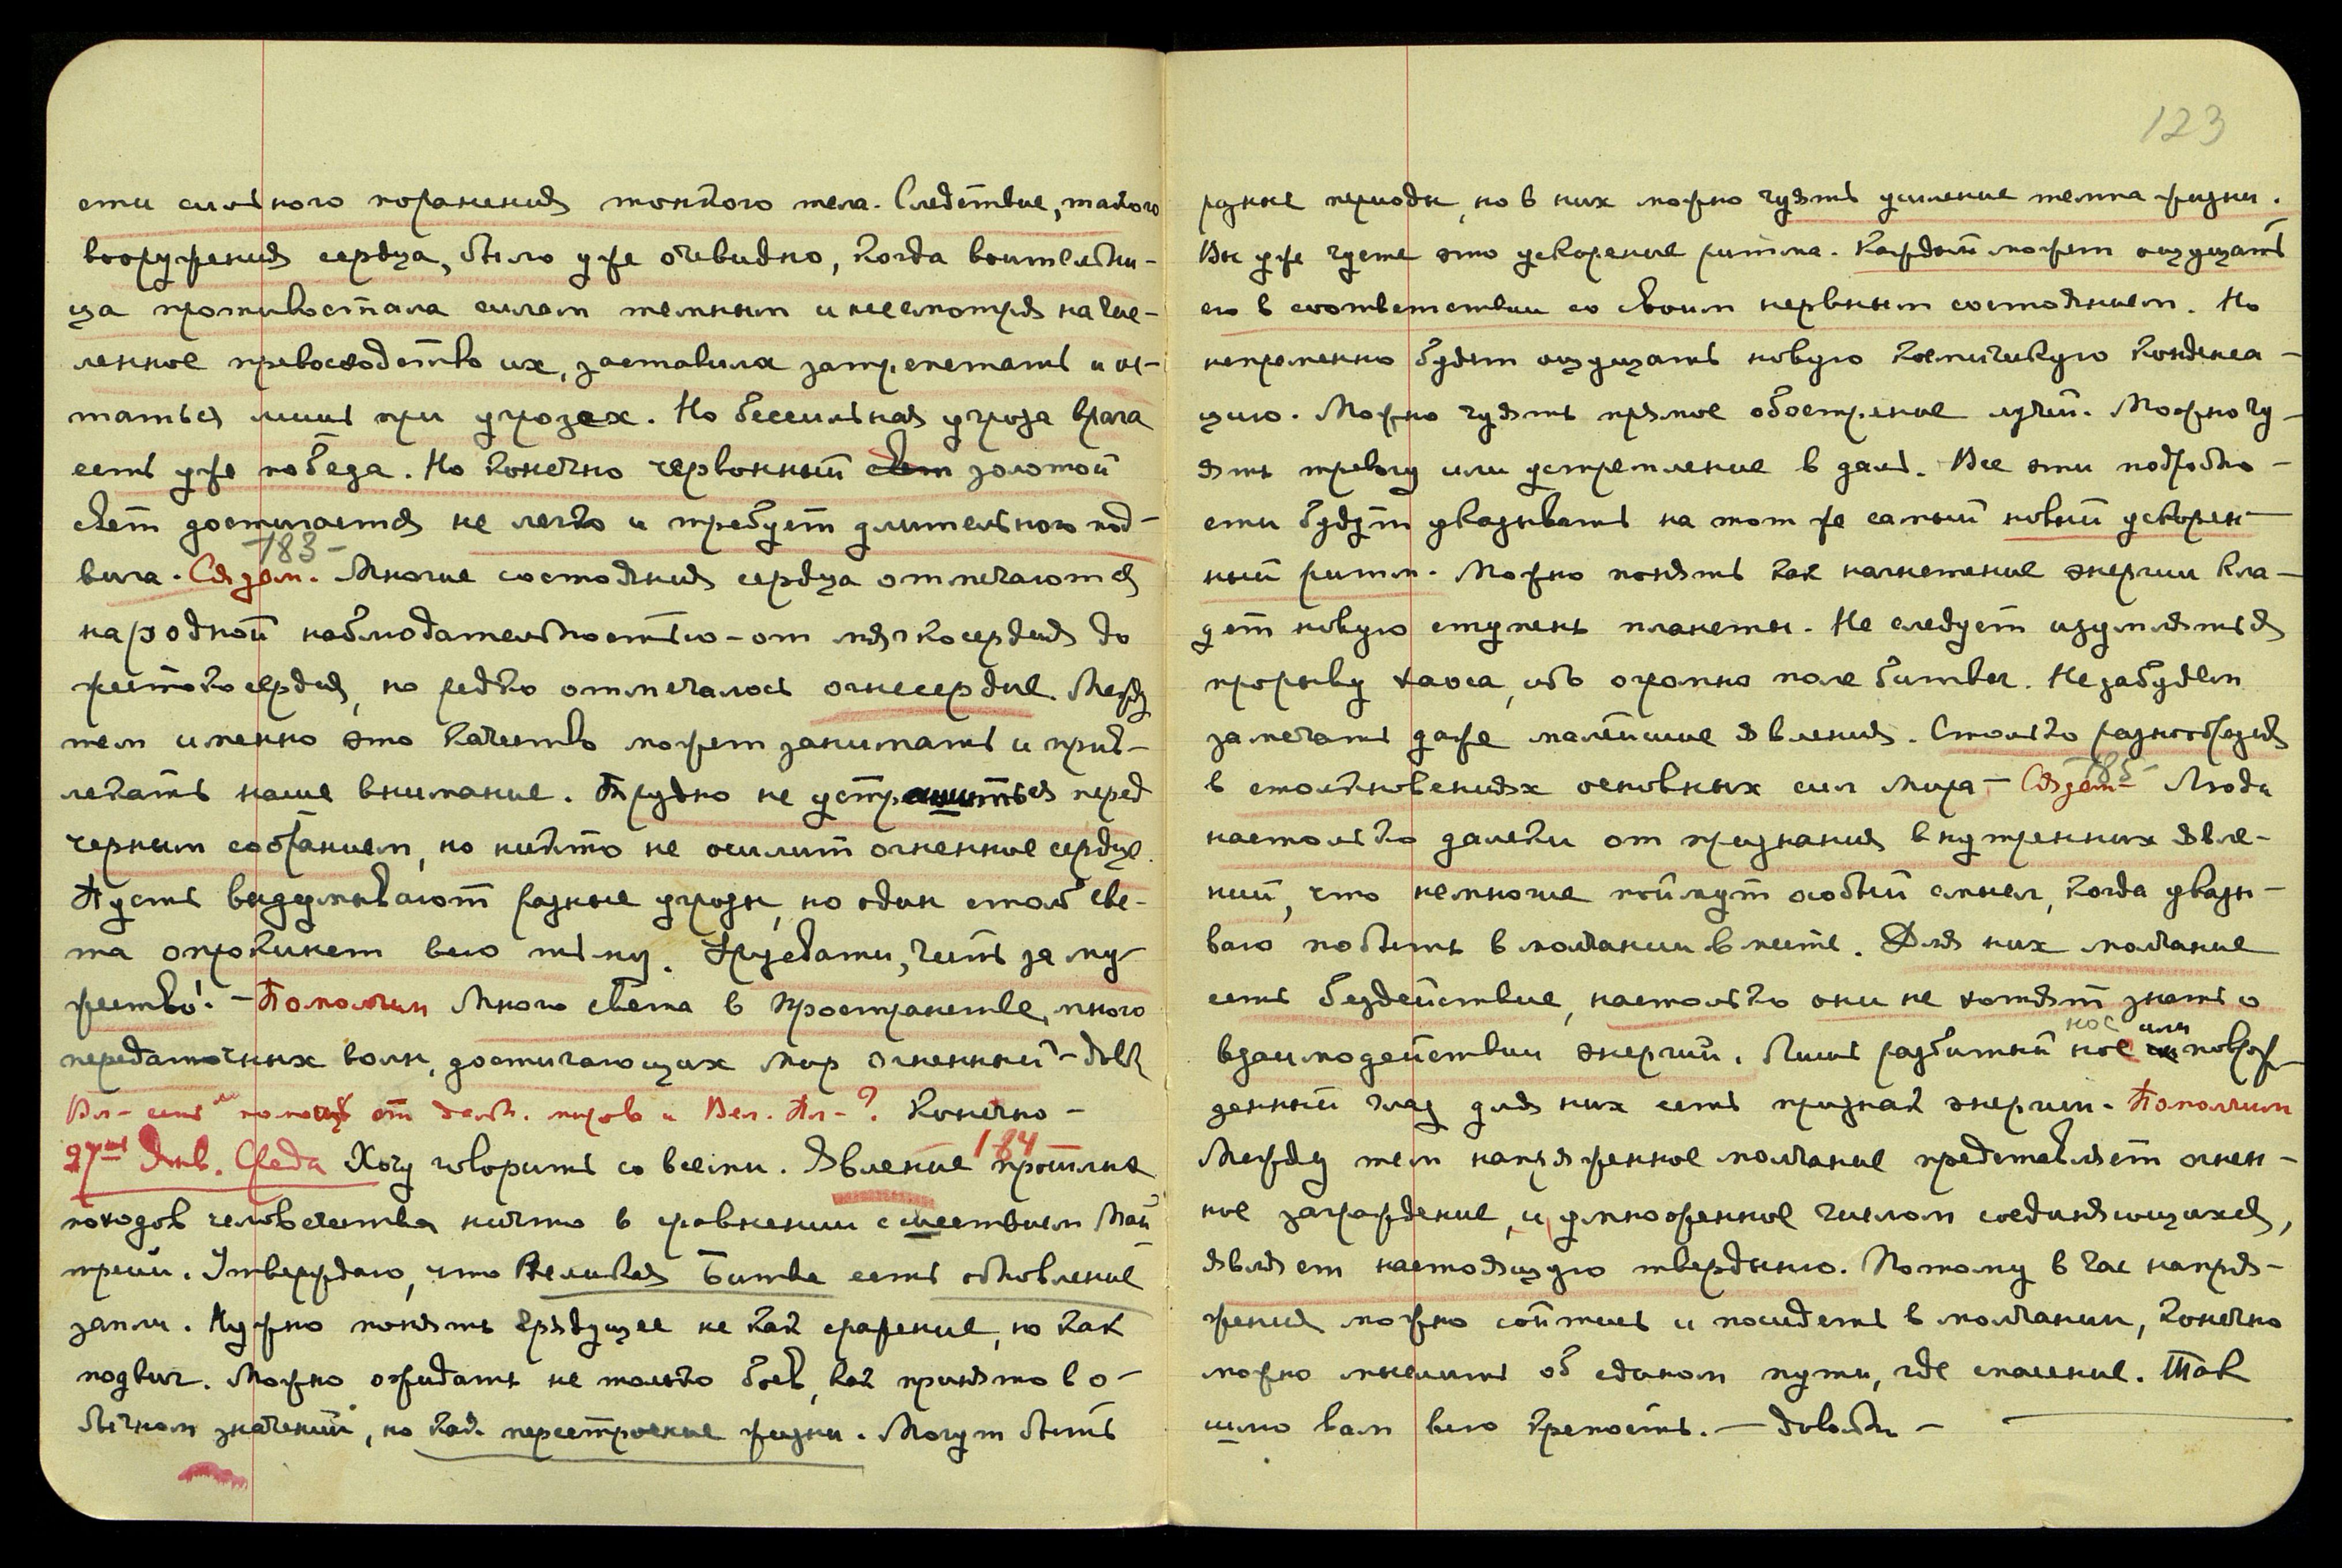 123
сти сильного поранения тонкого тела. Следствие, такого
вооружения сердца, было уже очевидно, когда воительни-
ца противостала силам темным и несмотря на чис-
ленное превосходство их, заставила затрепетать и ос-
таться лишь при угрозах. Но бессильная угроза врага
есть уже победа. Но конечно червонный свет золотой
свет достигается не легко и требует длительного под-
вига. Сядем. Многие состояния сердца отмечаются
183-
народной наблюдательностью - от мягкосердия до
жестокосердия, но редко отмечалось огнесердие. Между
тем именно это качество может занимать и прив-
лекать наше внимание. Трудно не устрашиться перед
черным собранием, но никто не осилит огненное сердце.
Пусть выдумывают разные угрозы, но один столб све-
та опрокинет всю тьму. Урусвати, честь за му-
жество! - Помолчим Много света в Пространстве, много
передаточных волн, достигающих Мир Огненный - Довл
Вл - есть ли помощь от дальн. миров и Вел. Пл -? Конечно -
184
27ое Янв. Среда Хочу говорить со всеми. Явление прошлых
походов человечества ничто в сравнении с шествием Май
трейи. Утверждаю, что Великая Битва есть обновление
земли. Нужно понять грядущее не как сражение, но как
подвиг. Можно ожидать не только боев, как принято в о-
бычном значении, но как перестроение жизни. Могут быть
разные периоды, но в них можно чуять усиление темпа жизни.
Вы уже чуете это ускорение ритма. Каждый может ощущать
его в соответствии со своим нервным состоянием. Но
непременно будет ощущать новую космическую конденса-
цию. Можно чуять прямое обострение лучей. Можно чу-
ять тревогу или устремление в даль. Все эти подробно-
сти будут указывать на тот же самый новый ускорен-
ный ритм. Можно понять как нагнетение энергии кла-
дет новую ступень планеты. Не следует изумляться
прорыву хаоса, ибо огромно поле битвы. Не забудем
замечать даже малейшие явления. Столько разнообразия
185-
в столкновениях основных сил Мира - Сядем - Люди
настолько далеки от признания внутренних явле-
ний, что немногие поймут особый смысл, когда указы-
ваю побыть в молчании вместе. Для них молчание
есть бездействие, настолько они не хотят знать о
нос или
взаимодействии энергий. Лишь разбитый нос повреж-
денный глаз для них есть признак энергии. Помолчим
Между тем напряженное молчание представляет огнен-
ное заграждение, и умноженное числом соединяющихся,
являет настоящую твердыню. Потому в час напря-
жения можно сойтись и посидеть в молчании, конечно
можно мыслить об едином пути, где спасение. Так
шлю вам всю крепость. - Довольн -